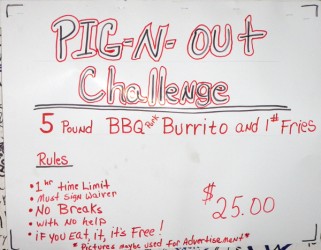 PIG-N-OUt
Challenge
5 Pound BBQ Pork Burrito and 1# Fries
Rules
• 1 hr time Limit
• Must Sign Waiver
• No Breaks
• With No help
• if you Eat, it, it's Free!
$25.00
*Pictures maybe used for Advertisement*